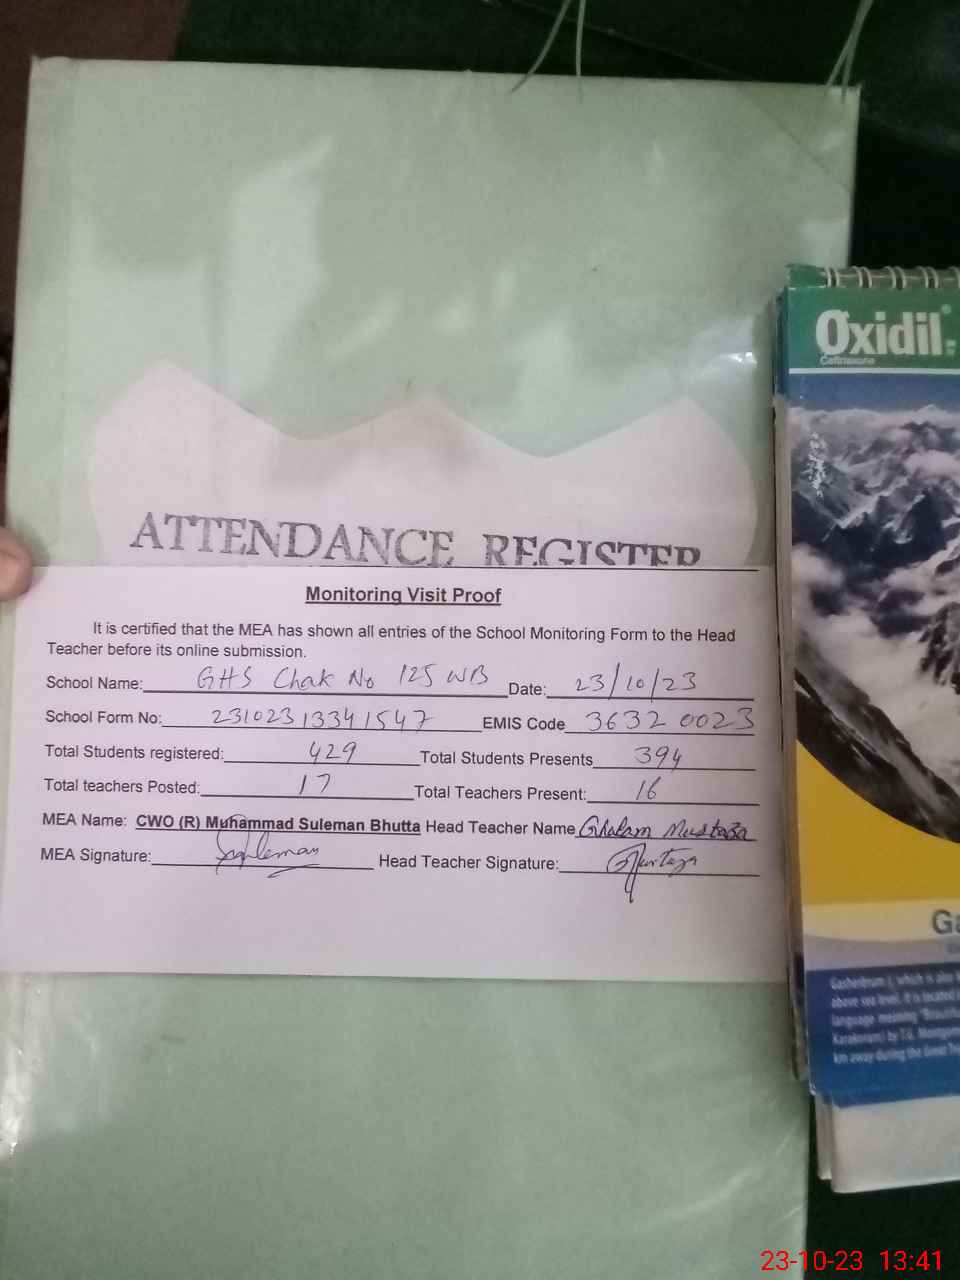 ATTENDANCE REGISTER
Monitoring Visit Proof
It is certified that the MEA has shown all entries of the School Monitoring Form to the Head
Teacher before its online submission.
School Name: GHS Chak No 125 WB Date: 23/10/23
School Form No: 23102313341547 EMIS Code 36320023
Total Students registered: 429 Total Students Presents 394
Total teachers Posted: 17 Total Teachers Present: 16
MEA Name: CWO (R) Muhammad Suleman Bhutta Head Teacher Name Ghulam Mustafa
MEA Signature: Suleman Head Teacher Signature:
Oxidil
Ceftriaxone
Ga
Gasherbrum I, which is also
above sea level. It is located
language meaning "Beautiful
Karakoram) by T.G. Montgom
km away during the Great Tr
23-10-23 13:41